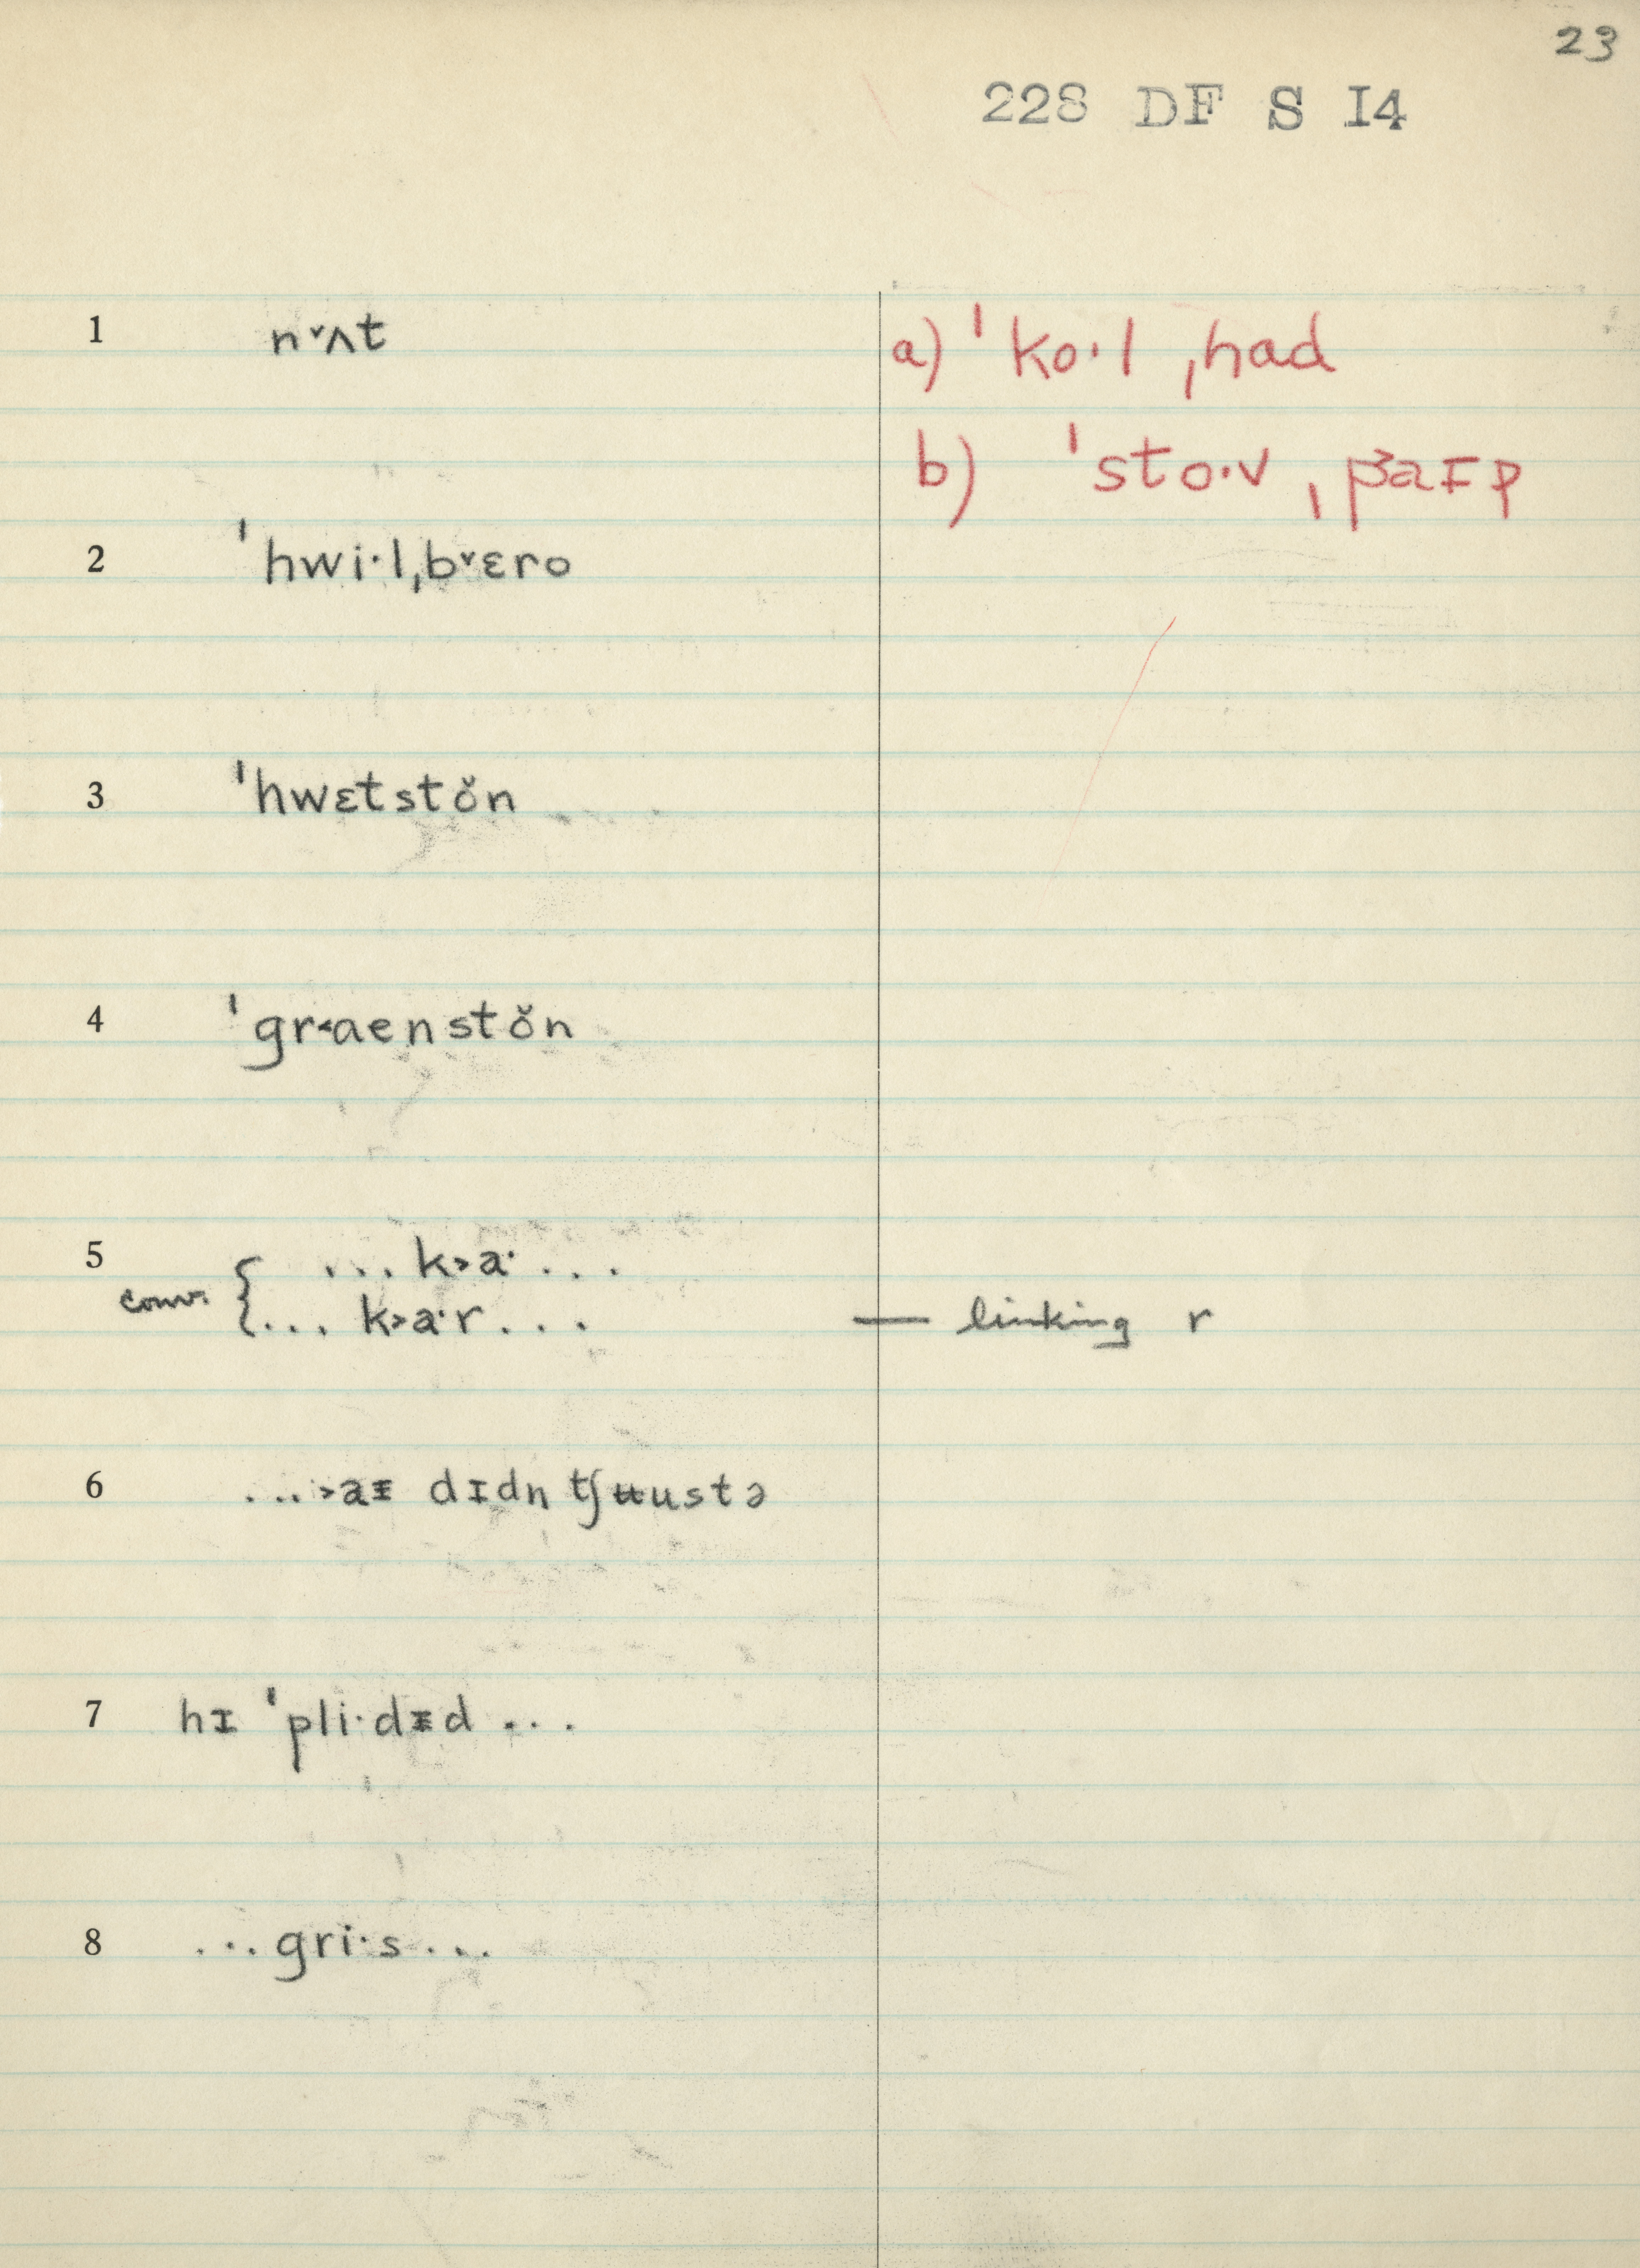 23
228 DF S I4
1 nˇʌt
a) ˈko·l ˌhad
b) ˈsto·v ˌpaɪp
2 ˈhwi·lˌbˇɛro
3 ˈhwɛtstŏn
4 ˈgr˂aenstŏn
5 ... k˃a· ...
conv. { ... k˃a·r ... — linking r
6 ...˃aᵻ dɪdn tʃʉustə
7 hɪ ˈpli·dᵻd ...
8 ...gri·s...